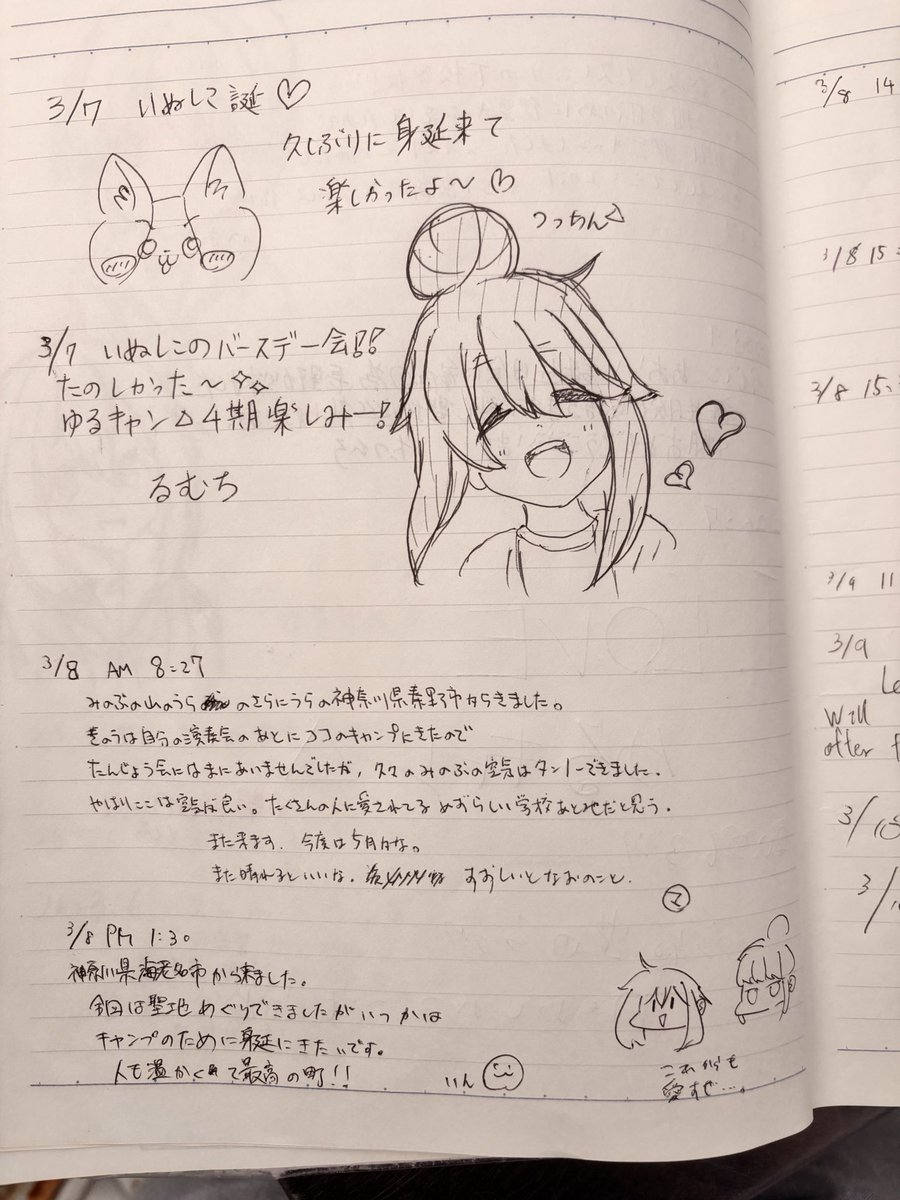 3/7 いぬしこ誕♡
久しぶりに身延来て
楽しかったよ〜♡
つっちん△
3/7 いぬしこのバースデー会!!
たのしかった〜✧✧
ゆるキャン△4期楽しみー!
るむち
3/8 AM 8:27
みのぶの山のうら のさらにうらの神奈川県秦野市からきました。
きのうは自分の演奏会のあとにココのキャンプにきたので
たんじょう会にはまにあいませんでしたが、久々のみのぶの空気はタンノーできました。
やはりここは空気が良い。たくさんの人に愛されてる めずらしい学校あと地だと思う。
また来ます。今度は5月かな。
また晴れるといいな。 すずしいとなおのこと。
マ
3/8 PM 1:30
神奈川県海老名市から来ました。
今回は聖地めぐりできましたがいつかは
キャンプのために身延にきたいです。
人も温かくて最高の町!!
いん
これからも
愛すぜ…。
3/8 14
3/8 15:
3/8 15:
3/9 11
3/9
Le
Will
after f
3/
3/